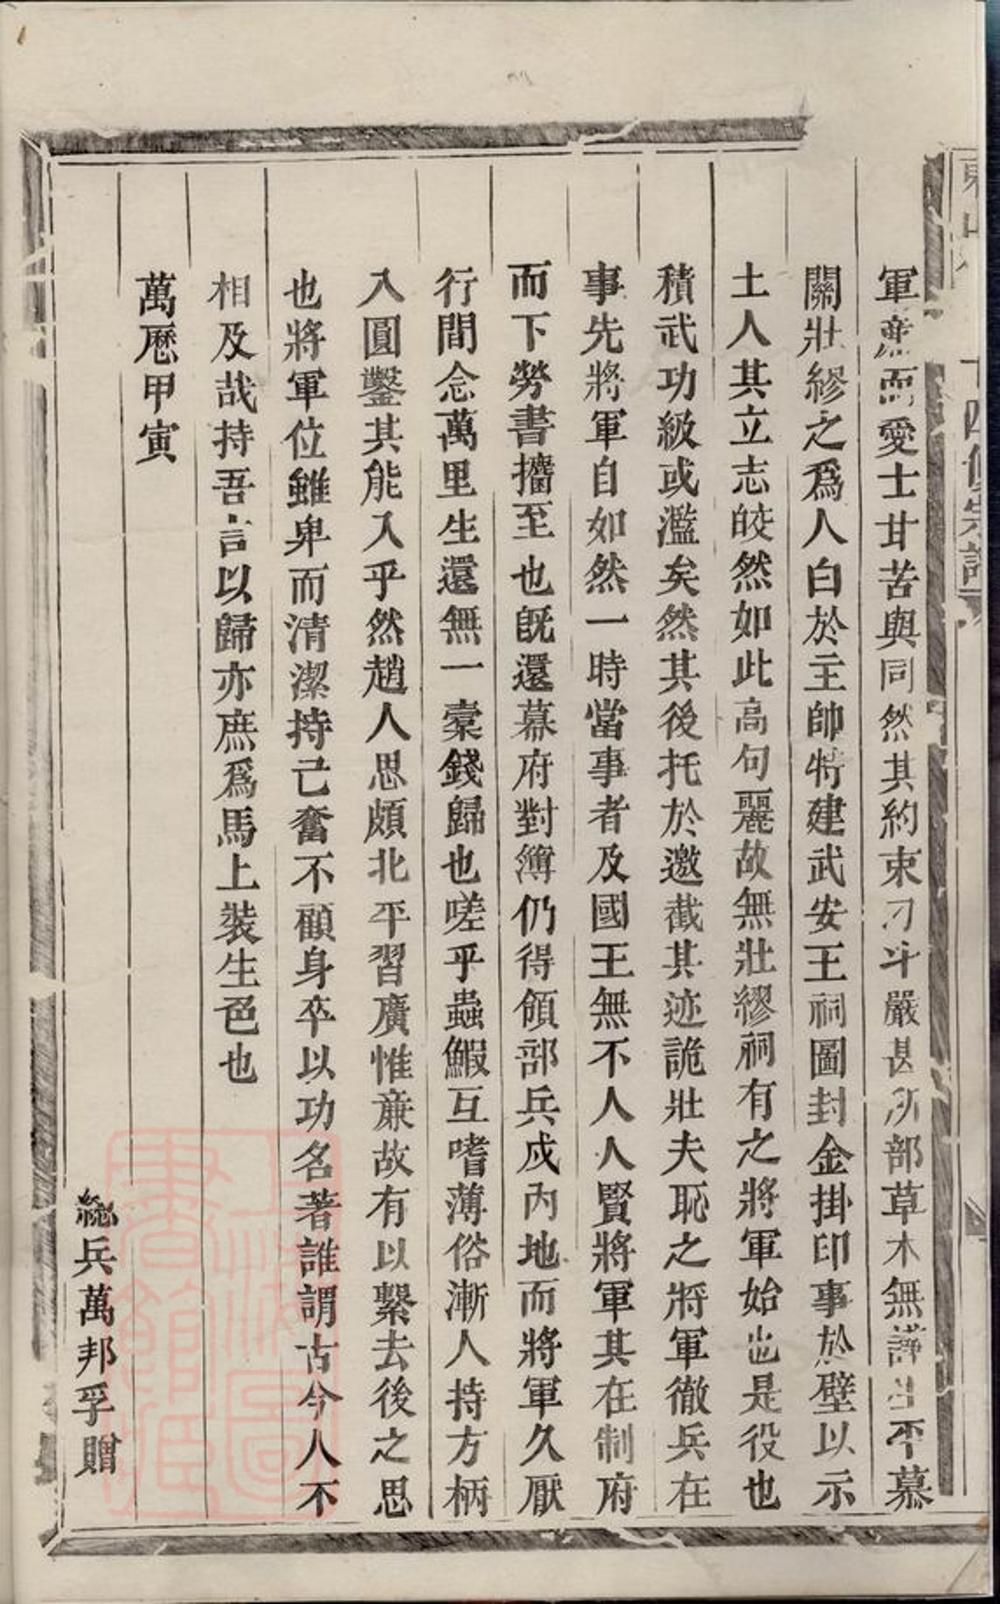 軍廉而愛士甘苦與同然其約束刁斗嚴甚所部草木無譁生平慕
關壯繆之爲人白於主帥特建武安王祠圖封金掛印事於壁以示
土人其立志皎然如此高句麗故無壯繆祠有之將軍始也是役也
積武功級或濫矣然其後托於邀截其迹詭壯夫恥之將軍徹兵在
事先將軍自如然一時當事者及國王無不人人賢將軍其在制府
而下勞書擕至也既還幕府對簿仍得領部兵戍內地而將軍久厭
行間念萬里生還無一橐錢歸也嗟乎蟲鰕互嗜薄俗漸人持方柄
入圓鑿其能入乎然趙人思頗北平習廣惟亷故有以繫去後之思
也將軍位雖卑而清潔持己奮不顧身卒以功名著誰謂古今人不
相及哉持吾言以歸亦庶爲馬上裝生色也
萬厯甲寅
總兵萬邦孚贈
十四修宗譜
上海圖書館藏